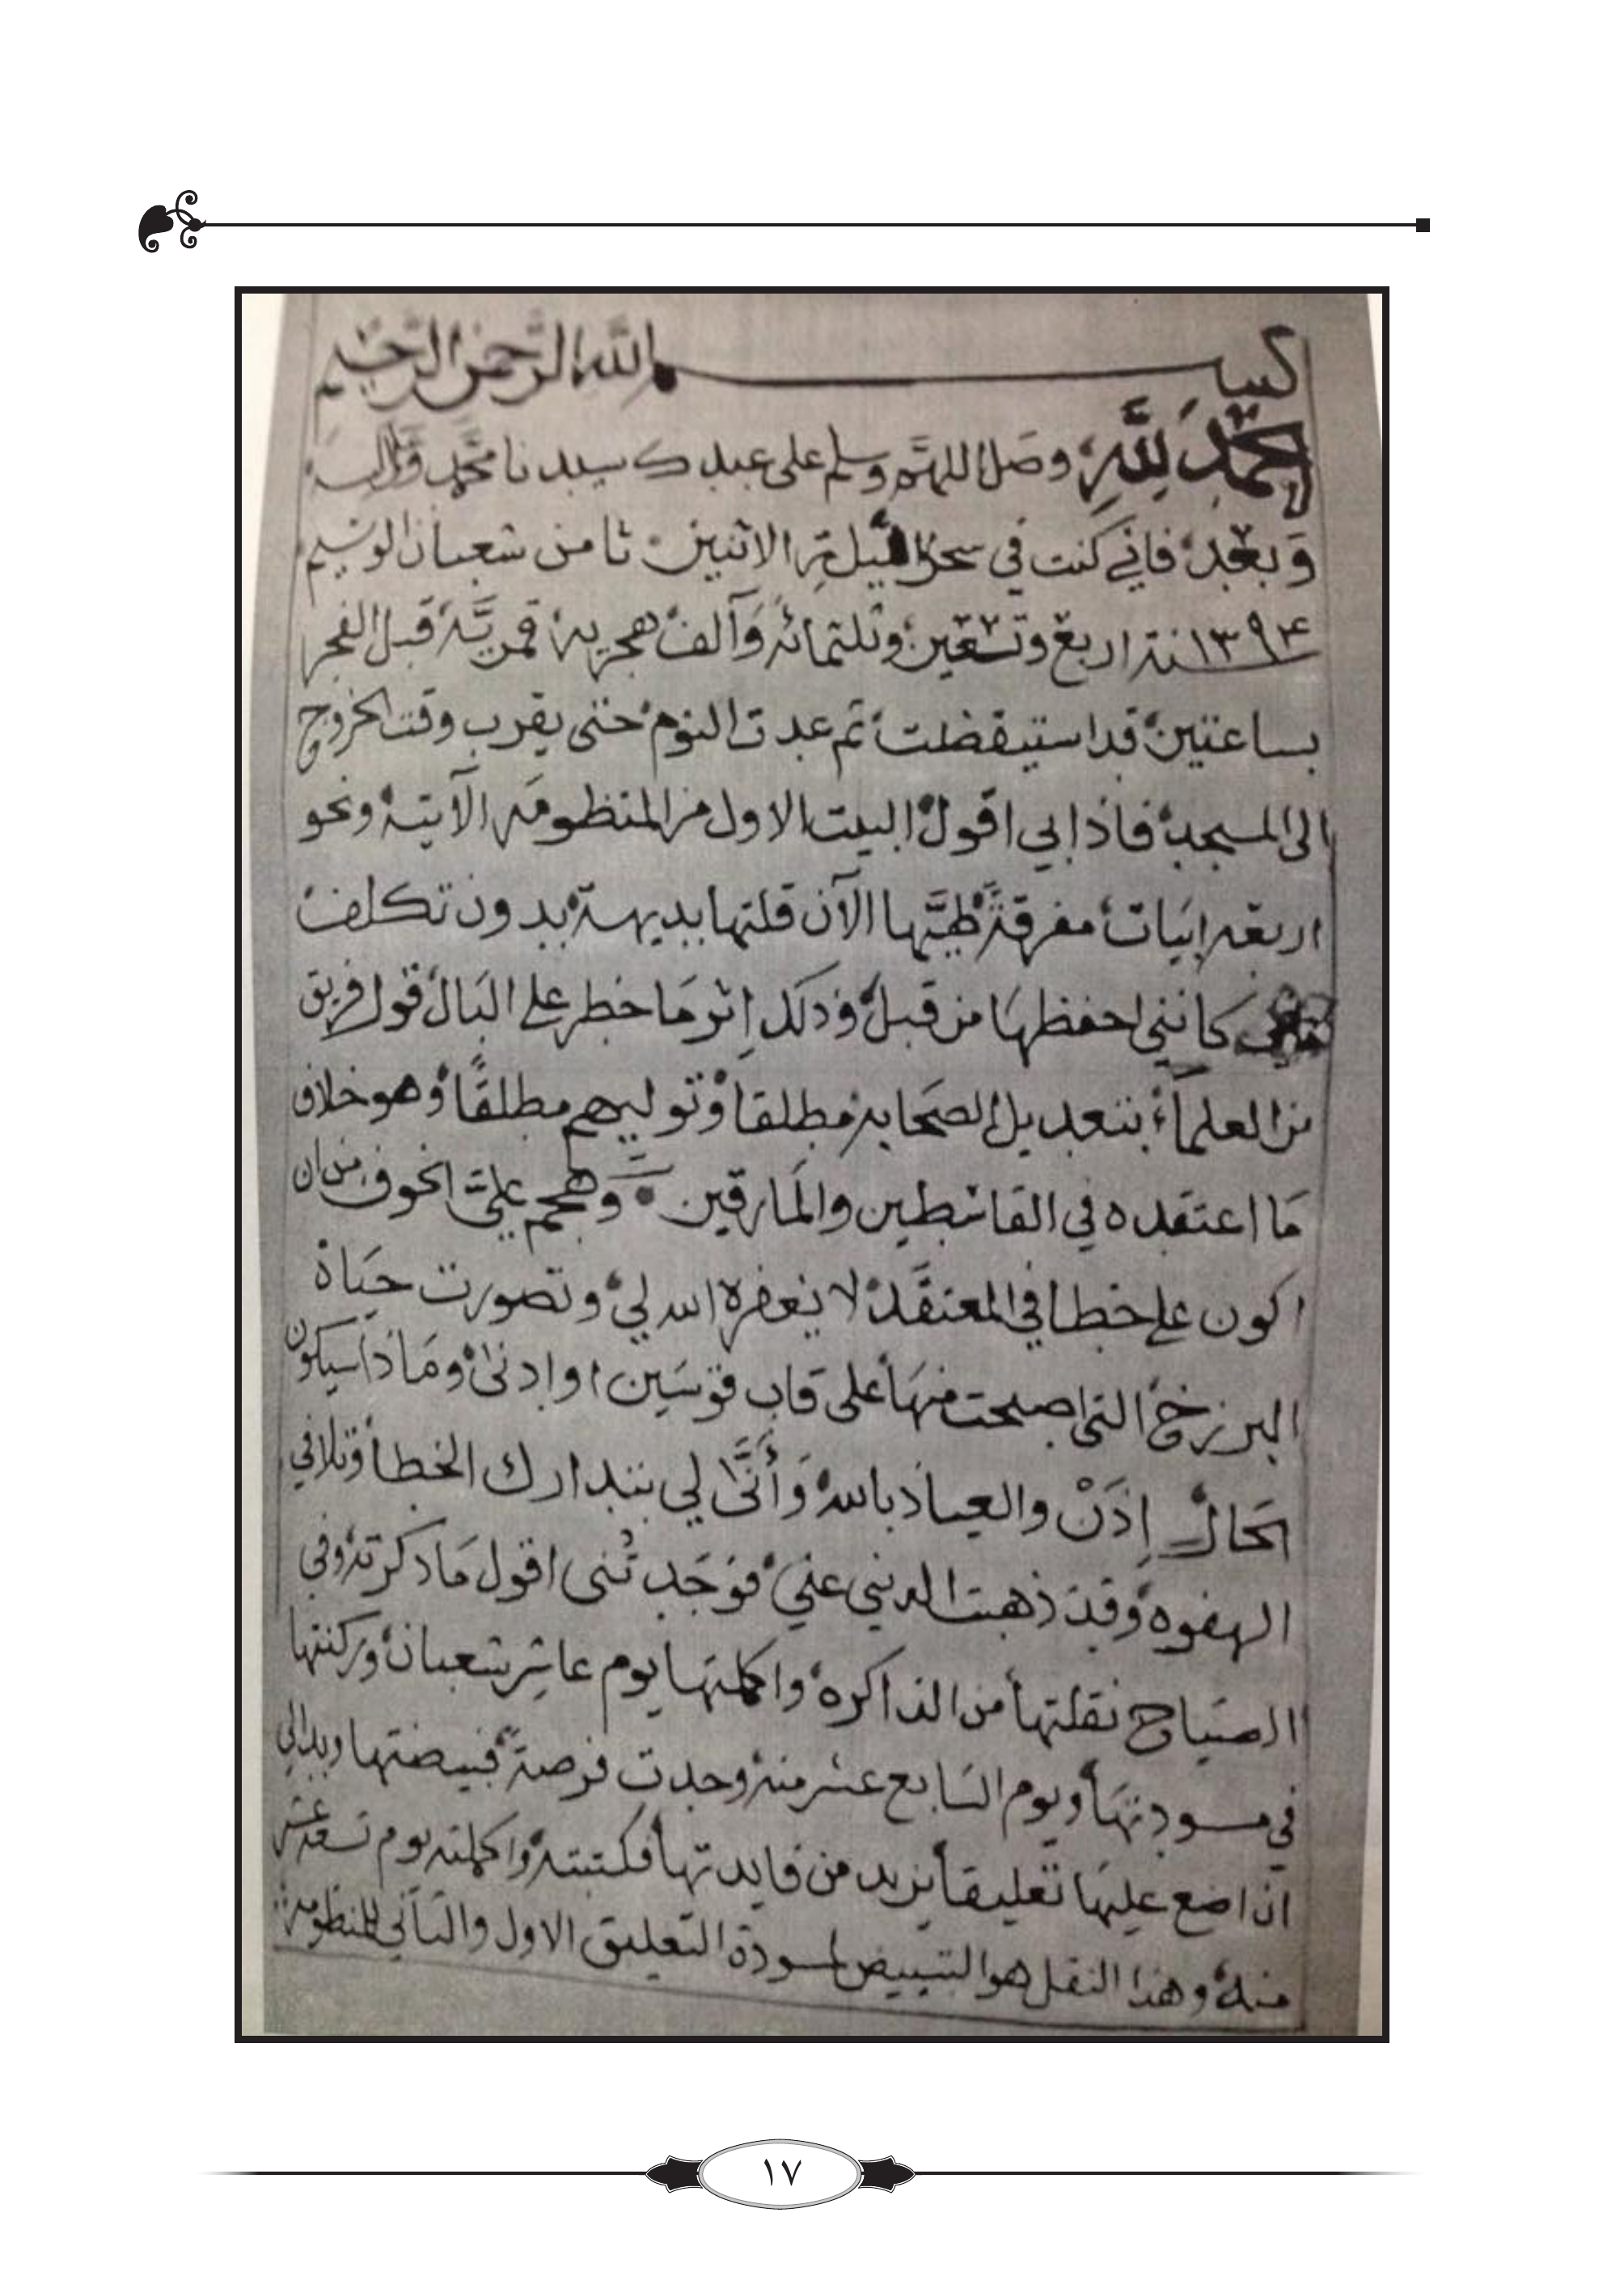 بسم الله الرحمن الرحيم
الحمد لله وصل اللهم وسلم على عبدك سيدنا محمد وآله
وبعد فاني كنت في سحر ليلة الاثنين ثامن شعبان الوسيم
١٣٩٤ سنة اربع وتسعين وثلثمائة وآلف هجرية قمرية قبل الفجر
بساعتين قد استيقضت ثم عدت النوم حتى يقرب وقت الخروج
الى المسجد فاذا بي اقول البيت الاول من المنظومة الآتية ونحو
اربعة ابيات مفرقة طيها الآن قلتها بديهة بدون تكلف
كانني احفظها من قبل وذلك إثر ما خطر على البال قول فريق
من العلماء بتعديل الصحابة مطلقا وتوليهم مطلقا وهو خلاف
ما اعتقده في القاسطين والمارقين وهجم علي الخوف من ان
اكون على خطا في المعتقد لا يغفره الله لي وتصورت حياة
البرزخ التي اصبحت منها على قاب قوسين او ادنى وماذا سيكون
الحال إذن والعياذ بالله وأنى لي بتدارك الخطأ وتلافي
الهفوه وقد ذهبت الدنيى عني فوجدتني اقول ما ذكرته وفي
الصباح نقلتها من الذاكره واكملتها يوم عاشر شعبان وركنتها
في مسودتها ويوم السابع عشر منه وجدت فرصة فبيضتها وبدالي
ان اضع عليها تعليقا يزيد من فايدتها فكتبته واكملته يوم تسعة عشر
منه وهذا النقل هو التبييض لمسودة التعليق الاول والثاني للمنظومة
١٧